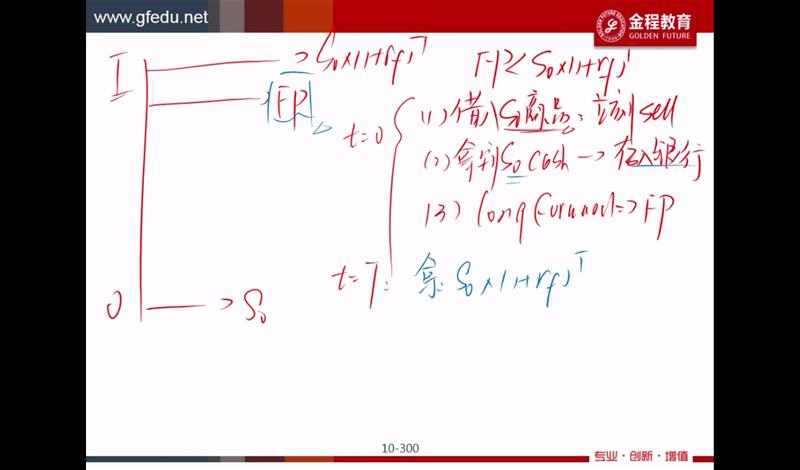 www.gfedu.net
金程教育
GOLDEN FUTURE
T → S₀×(1+rf)ᵀ
FP < S₀×(1+rf)ᵀ
FP
t=0 (1) 借入S₀商品,立刻sell
(2) 拿到S₀ cash → 存入银行
(3) long forward => FP
t=T: 拿 S₀×(1+rf)ᵀ
0 → S₀
10-300
专业·创新·增值